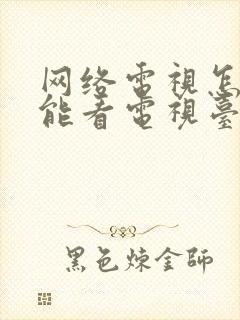 网络電視怎
能看電視臺
黑色煉金師